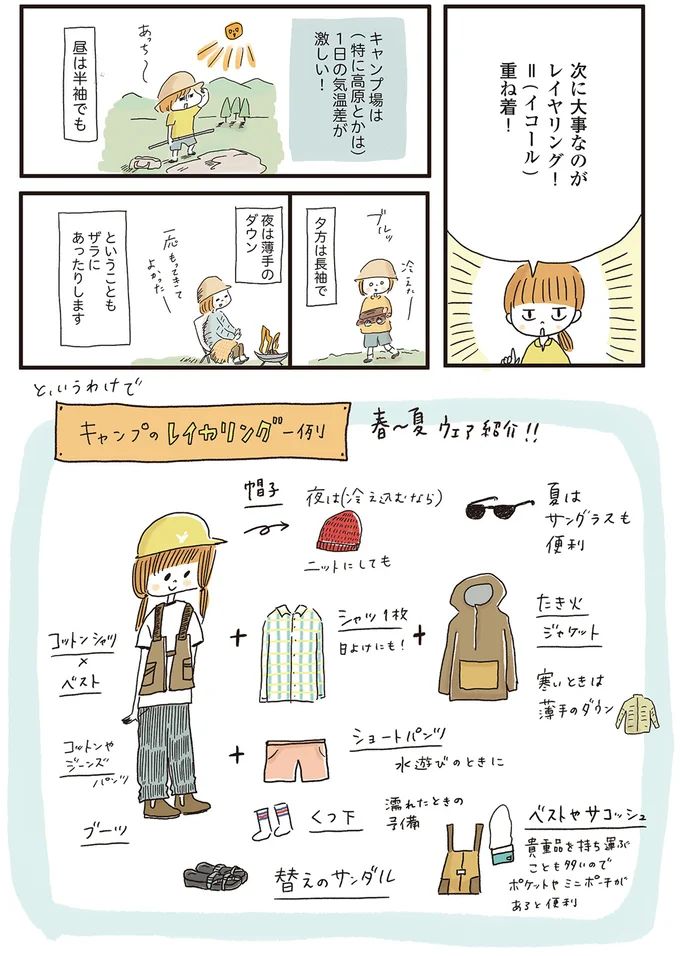 次に大事なのが
レイヤリング！
＝(イコール)
重ね着！
キャンプ場は
(特に高原とかは)
1日の気温差が
激しい！
あっち〜
昼は半袖でも
ブルッ
冷えた〜
夕方は長袖で
夜は薄手の
ダウン
一応もってきて
よかった〜
ということも
ザラに
あったりします
というわけで
キャンプのレイヤリング一例
春〜夏ウェア紹介!!
帽子
夜は(冷え込むなら)
ニットにしても
夏は
サングラスも
便利
コットンシャツ
×
ベスト
+
シャツ1枚
日よけにも!
+
たき火
ジャケット
寒いときは
薄手のダウン
コットンや
ジーンズ
パンツ
+
ショートパンツ
水遊びのときに
ブーツ
くつ下
濡れたときの
予備
替えのサンダル
ベストやサコッシュ
貴重品を持ち運ぶ
ことも多いので
ポケットやミニポーチが
あると便利